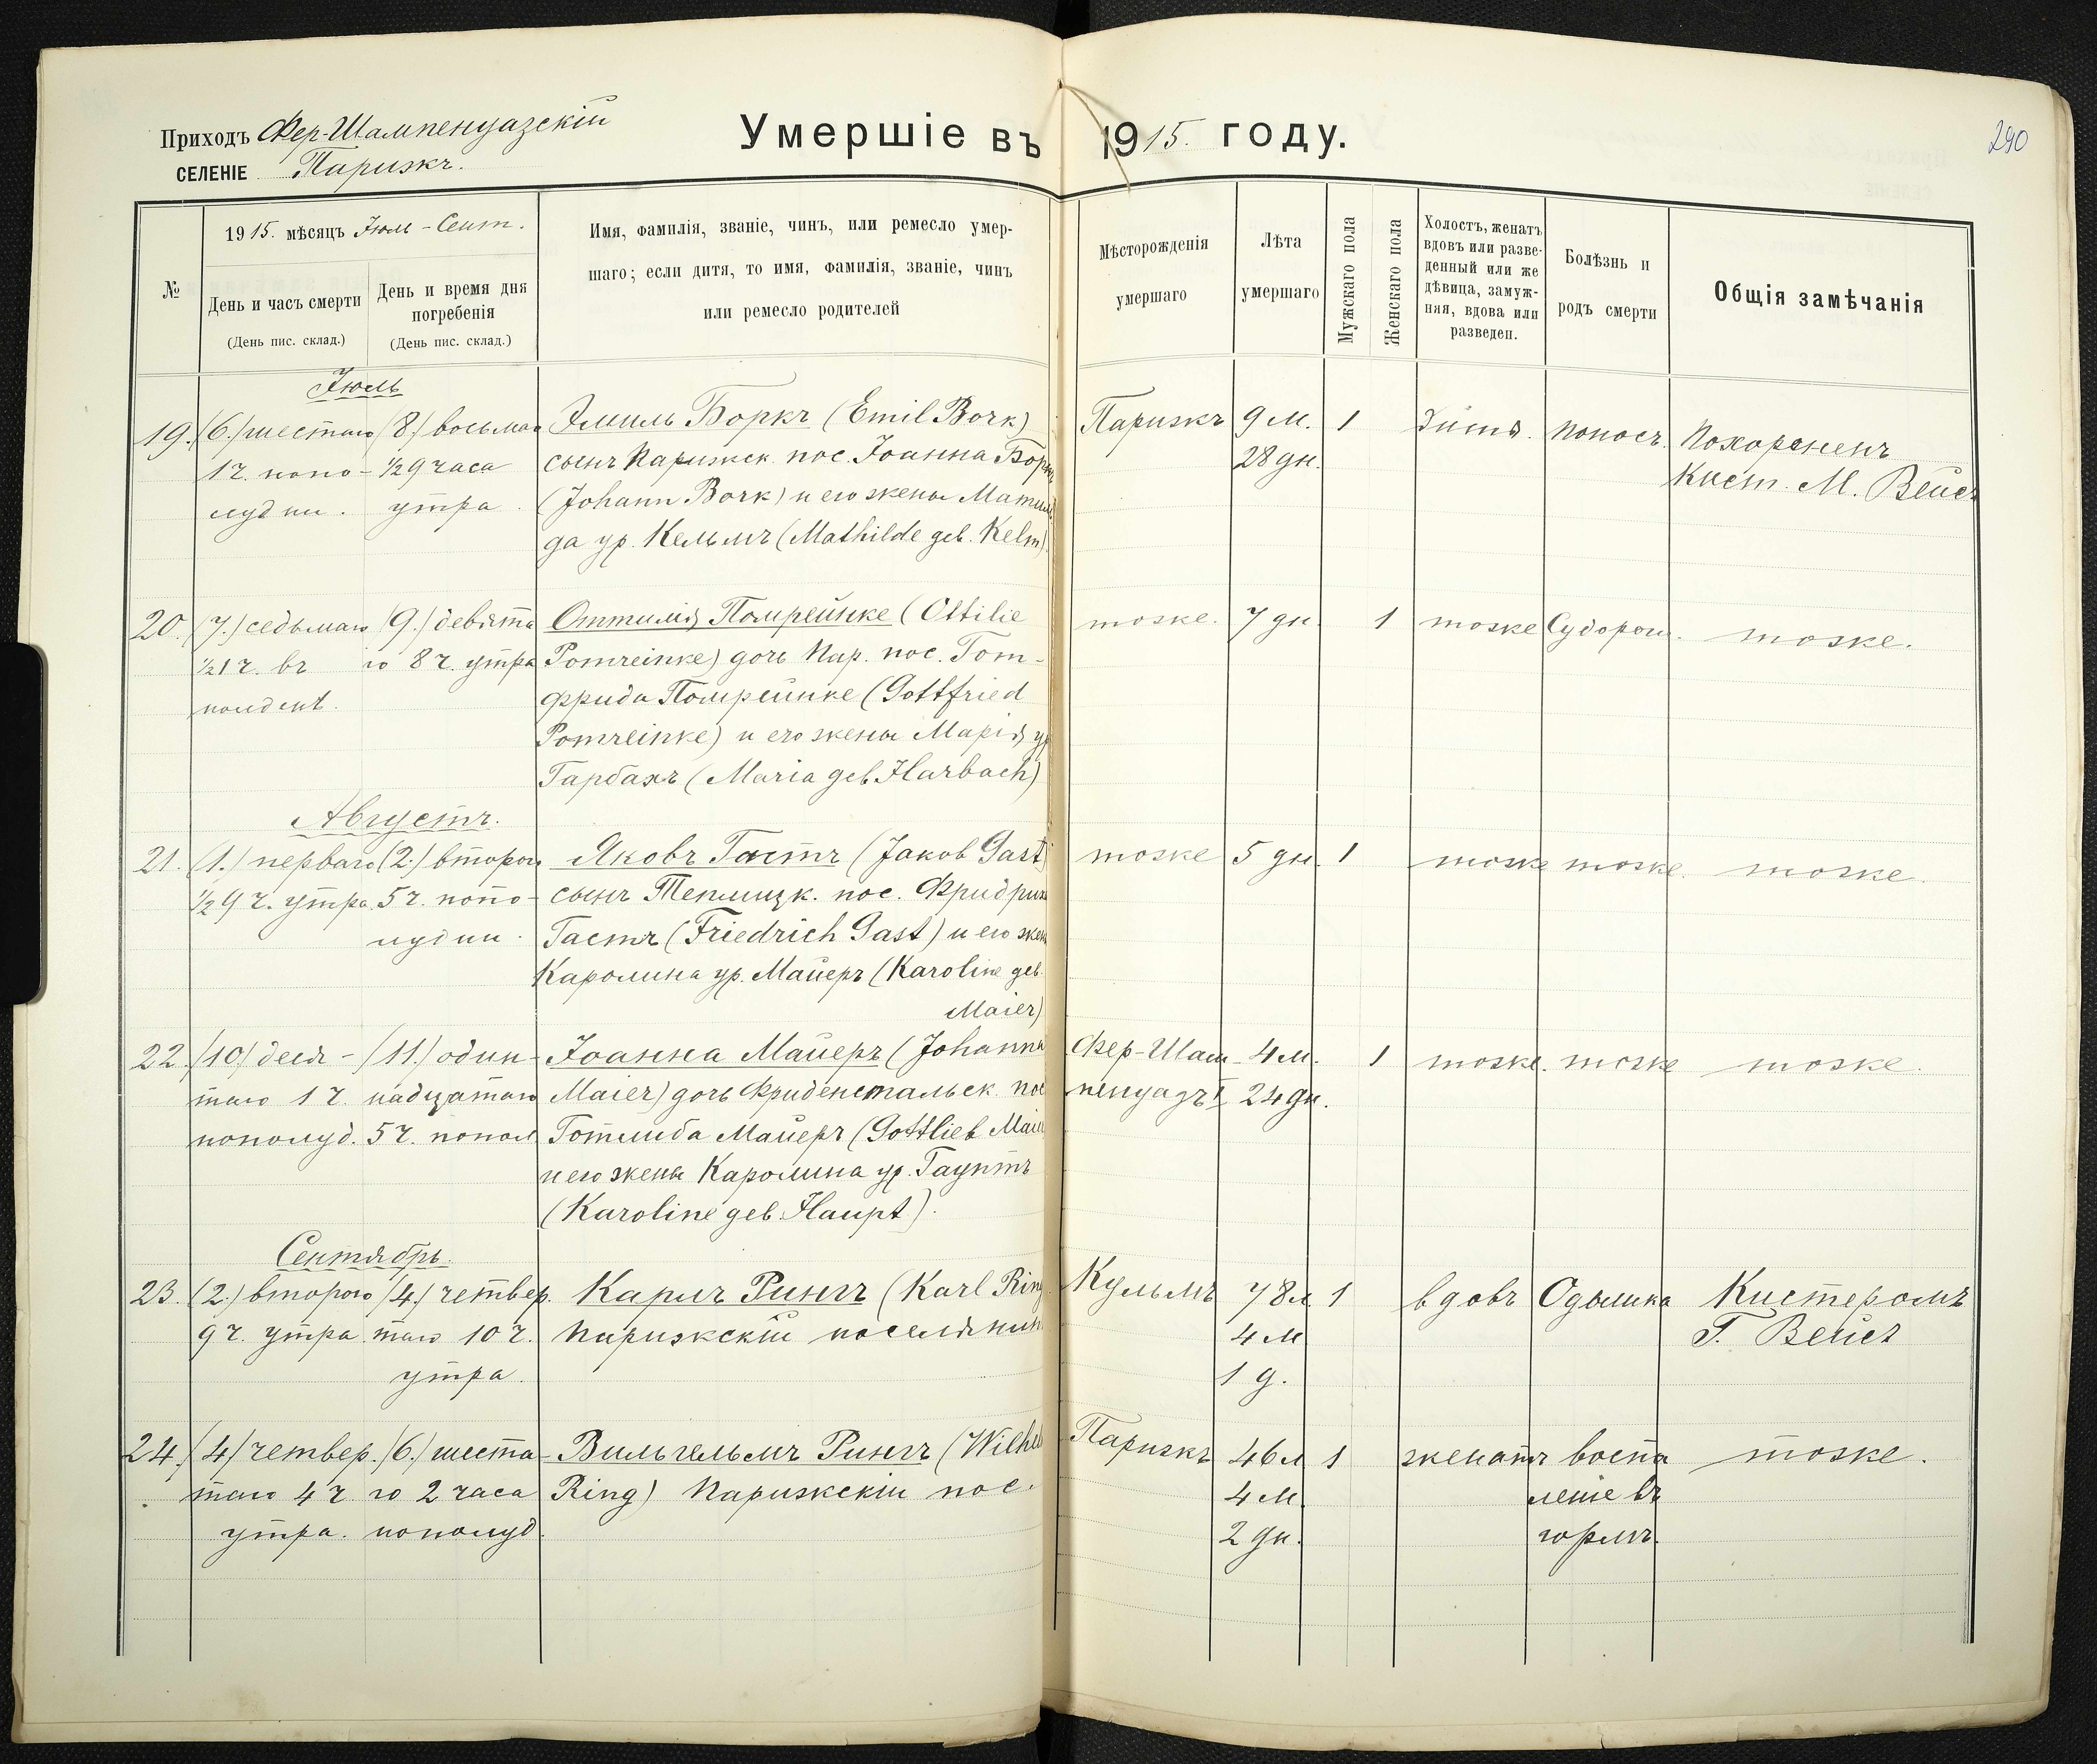 Приходъ Фер-Шампенуазскій
СЕЛЕНІЕ Парижъ.
Умершіе въ 1915. году.
290
№
1915. мѣсяцъ Іюль - Сент.
День и часъ смерти
(День пис. склад.)
День и время дня
погребенія
(День пис. склад.)
Имя, фамилія, званіе, чинъ, или ремесло умер-
шаго; если дитя, то имя, фамилія, званіе, чинъ
или ремесло родителей
Мѣсторожденія
умершаго
Лѣта
умершаго
Мужскаго пола
Женскаго пола
Холостъ, женатъ
вдовъ или разве-
денный или же
дѣвица, замуж-
няя, вдова или
разведен.
Болѣзнь и
родъ смерти
Общія замѣчанія
Іюль
19.
(6.) шестаго
1 ч. попо-
лудни.
(8.) восьмаго
½9 часа
утра.
Эмиль Боркъ (Emil Bork)
сынъ Парижск. пос. Іоанна Боркъ
(Johann Bork) и его жены Матиль
да ур. Кельмъ (Mathilde geb. Kelm).
Парижъ
9 м.
28 дн.
1
Дитя.
поносъ.
Похороненъ
Кист. М. Вейсъ
20.
(7.) седьмаго
½1 ч. въ
полденѣ.
(9.) девята
го 8 ч. утра
Оттилія Помрейнке (Ottilie
Pomreinke) дочь Пар. пос. Гот-
фрида Помрейнке (Gottfried
Pomreinke) и его жены Марія ур
Гарбахъ (Maria geb. Harbach)
тоже.
7 дн.
1
тоже
Судорож.
тоже.
Августъ.
21.
(1.) перваго
½9 ч. утра.
(2.) втораго
5 ч. попо-
лудни.
Яковъ Гастъ (Jakob Gast)
сынъ Теплицк. пос. Фридриха
Гастъ (Friedrich Gast) и его жен
Каролина ур. Майеръ (Karoline geb.
Maier)
тоже
5 дн.
1
тоже
тоже.
тоже.
22.
(10) деся-
таго 1 ч.
пополуд.
(11.) один-
надцатаго
5 ч. попол
Іоанна Майеръ (Johanna
Maier) дочь Фриденстальск. пос
Готлиба Майеръ (Gottlieb Maier
и его жены Каролина ур. Гауптъ
(Karoline geb. Haupt).
Фер-Шам-
пенуазъ I
4 м.
24 дн.
1
тоже.
тоже
тоже.
Сентябрь.
23.
(2.) второго
9 ч. утра.
(4.) четвер.
таго 10 ч.
утра.
Карлъ Рингъ (Karl Ring
Парижскій поселянин
Кульмъ
78 л
4 м
1 д.
1
вдовъ
Одышка
Кистеромъ
Г. Вейсъ
24.
(4) четвер.
таго 4 ч
утра.
(6.) шеста-
го 2 часа
пополуд.
Вильгельмъ Рингъ (Wilhelm
Ring) Парижскій пос.
Парижъ
46 л
4 м.
2 дн.
1
женатъ
воспа
леніе въ
горлѣ.
тоже.